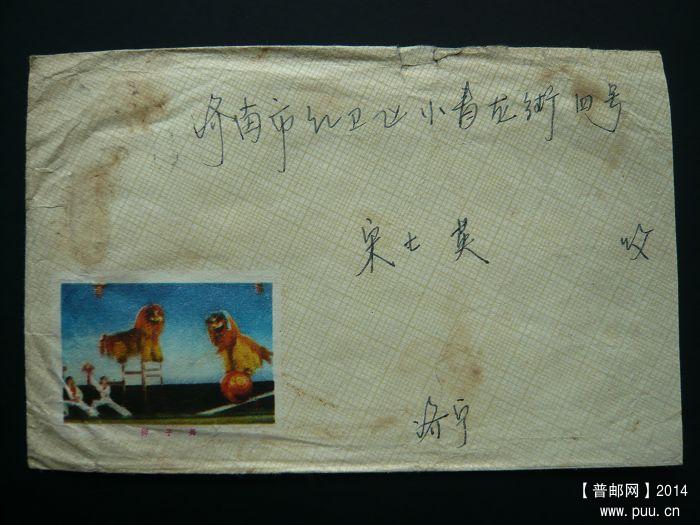 济南市红卫区小青龙街四号
宋士英 收
狮子舞
济宁
【普邮网】2014
www.puu.cn